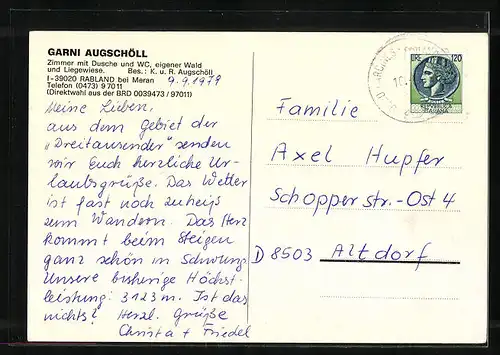 GARNI AUGSCHÖLL
Zimmer mit Dusche und WC, eigener Wald
und Liegewiese. Bes.: K. u. R. Augschöll
I-39020 RABLAND bei Meran
Telefon (0473) 97011
(Direktwahl aus der BRD 0039473/97011)
9.9.1979
Meine Lieben,
aus dem Gebiet der
"Dreitausender" senden
wir Euch herzliche Ur-
laubsgrüße. Das Wetter
ist fast noch zu heiß
zum Wandern. Das Herz
kommt beim Steigen
ganz schön in Schwung.
Unsere bisherige Höchst-
leistung: 3123 m. Ist das
nichts? Herzl. Grüße
Christa + Friedel
LIRE 120
REPUBBLICA
ITALIANA
Familie
Axel Hupfer
Schopperstr.-Ost 4
D 8503 Altdorf